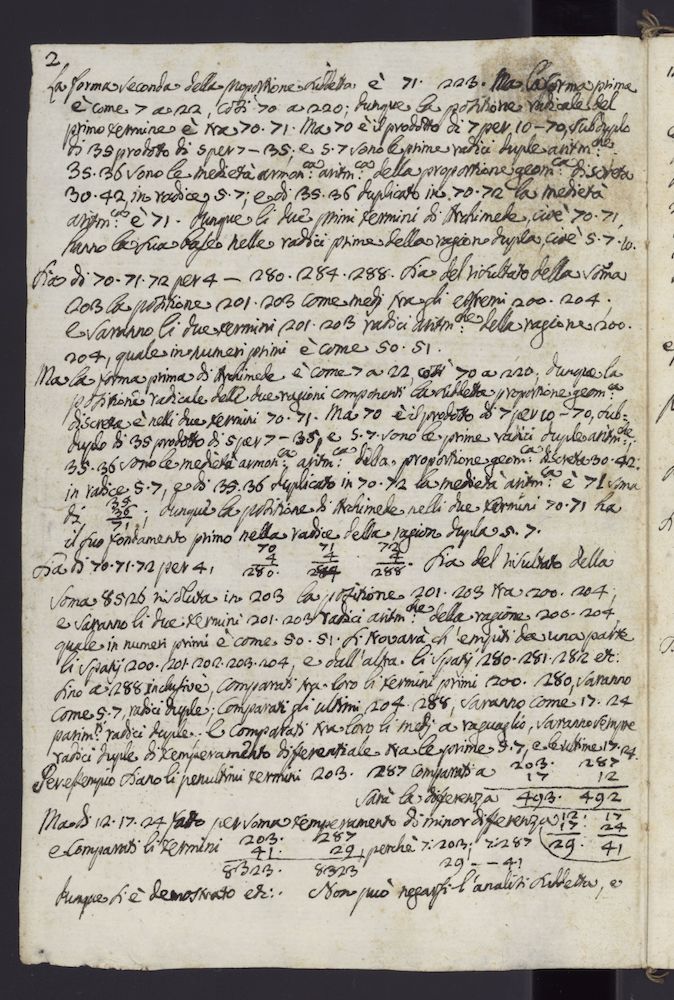 2
La forma seconda della proportione suddetta è 71. 223. Ma la forma prima
è come 7 a 22, così 70 a 220; dunque la positione radicale del
primo termine è tra 70. 71. Ma 70 è il prodotto di 7 per 10 – 70, subduplo
di 35 prodotto di 5 per 7 – 35, e 5. 7 sono le prime radici duple aritm:che
35. 36 sono le medietà armon:ca aritm:ca della proportione geom:ca discreta
30. 42, in radice 5. 7; e di 35. 36 duplicato in 70. 72 la medietà
aritm:ca è 71. dunque li due primi termini di Archimede, cioè 70. 71,
hanno la sua base nelle radici prime della ragion dupla, cioè 5. 7. 10.
Sia di 70. 71. 72 per 4 — 280. 284. 288. Sia del risultato della soma
203 la positione 201. 203 come medj tra gli estremi 200. 204.
e saranno li due termini 201. 203 radici aritm:che della ragione 200.
204, quale in numeri primi è come 50. 51.
Ma la forma prima di Archimede è come 7 a 22, così 70 a 220; dunque la
positione radicale delle due ragioni componenti la suddetta proportione geom:ca
discreta è nelli due termini 70. 71. Ma 70 è il prodotto di 7 per 10 – 70, sub-
duplo di 35 prodotto di 5 per 7 – 35, e 5. 7 sono le prime radici duple aritm:che;
35. 36 sono le medietà armon:ca aritm:ca della proportione geom:ca discreta 30. 42.
in radice 5. 7, e di 35. 36 duplicato in 70. 72 la medietà aritm:ca è 71 soma
di 35 36 71; dunque la positione di Archimede nelli due termini 70. 71 ha
il suo fondamento primo nella radice della ragion dupla 5. 7.
70 71 72
Sia di 70. 71. 72 per 4, 4 4 4 Sia del risultato della
280. 284 288.
soma 8526 risoluta in 203 la positione 201. 203 tra 200. 204,
e saranno li due termini 201. 203 radici aritm:che della ragione 200. 204
quale in numeri primi è come 50. 51. Si trovarà ch'empiti da una parte
li spatj 200. 201. 202. 203. 204, e dall'altra li spatj 280. 281. 282 etc:
sino a 288 inclusive, comparati tra loro li termini primi 200. 280, saranno
come 5. 7, radici duple; comparati gli ultimi 204. 288, saranno come 17. 24
parim:ti radici duple. e comparati tra loro li medj a raguaglio, saranno sempre
radici duple di temperamento differentiale tra le prime 5. 7, e le ultime 17. 24
Per esempio siano li penultimi termini 203. 287 comparati a 203. 287
17 12
sarà la differenza 493. 492
Ma di 12. 17. 24 fatto per soma temperamento di minor differenza 12: 17
17 24
29. 41
e comparati li termini 203. 287
41. 29, perchè 7: 203; 7: 287
8323. 8323 29 - - 41
dunque si è demostrato etc:. Non può negarsi l'analisi suddetta, e